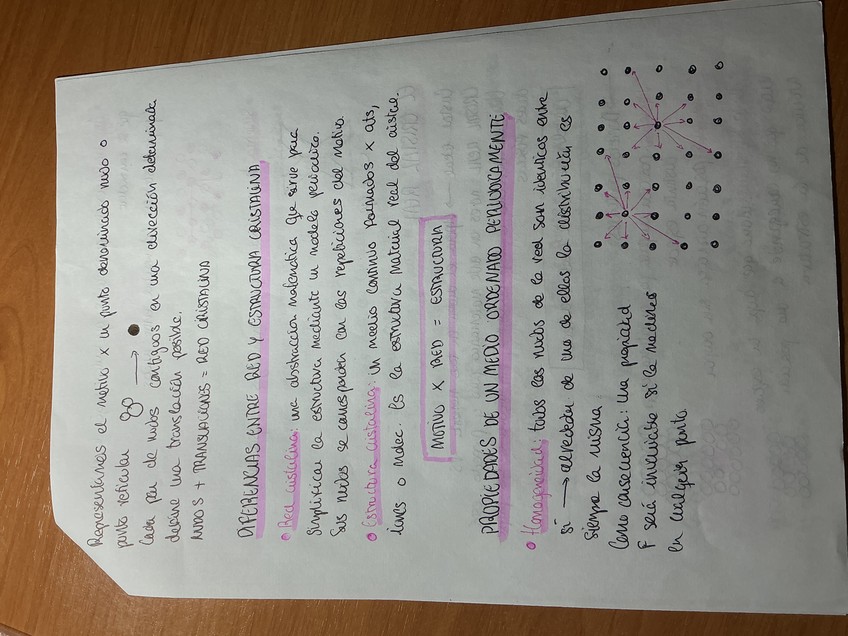 Representamos el motivo x un punto denominado nudo o
punto reticular →
Cada par de nudos contiguos en una dirección determinada
define una translación posible.
NUDOS + TRANSLACIONES = RED CRISTALINA
DIFERENCIAS ENTRE RED Y ESTRUCTURA CRISTALINA
• Red cristalina: una abstracción matemática que sirve para
simplificar la estructura mediante un modelo periódico.
Sus nudos se corresponden con las repeticiones del motivo.
• Estructura cristalina: un medio continuo formados x ats,
iones o molec. Es la estructura material real del cristal.
MOTIVO X RED = ESTRUCTURA
PROPIEDADES DE UN MEDIO ORDENADO PERIÓDICAMENTE
• Homogeneidad: todos los nudos de la red son idénticos entre
sí → alrededor de uno de ellos la distribución es
siempre la misma
Como consecuencia: una propiedad
F será invariable si la medimos
en cualquier punto